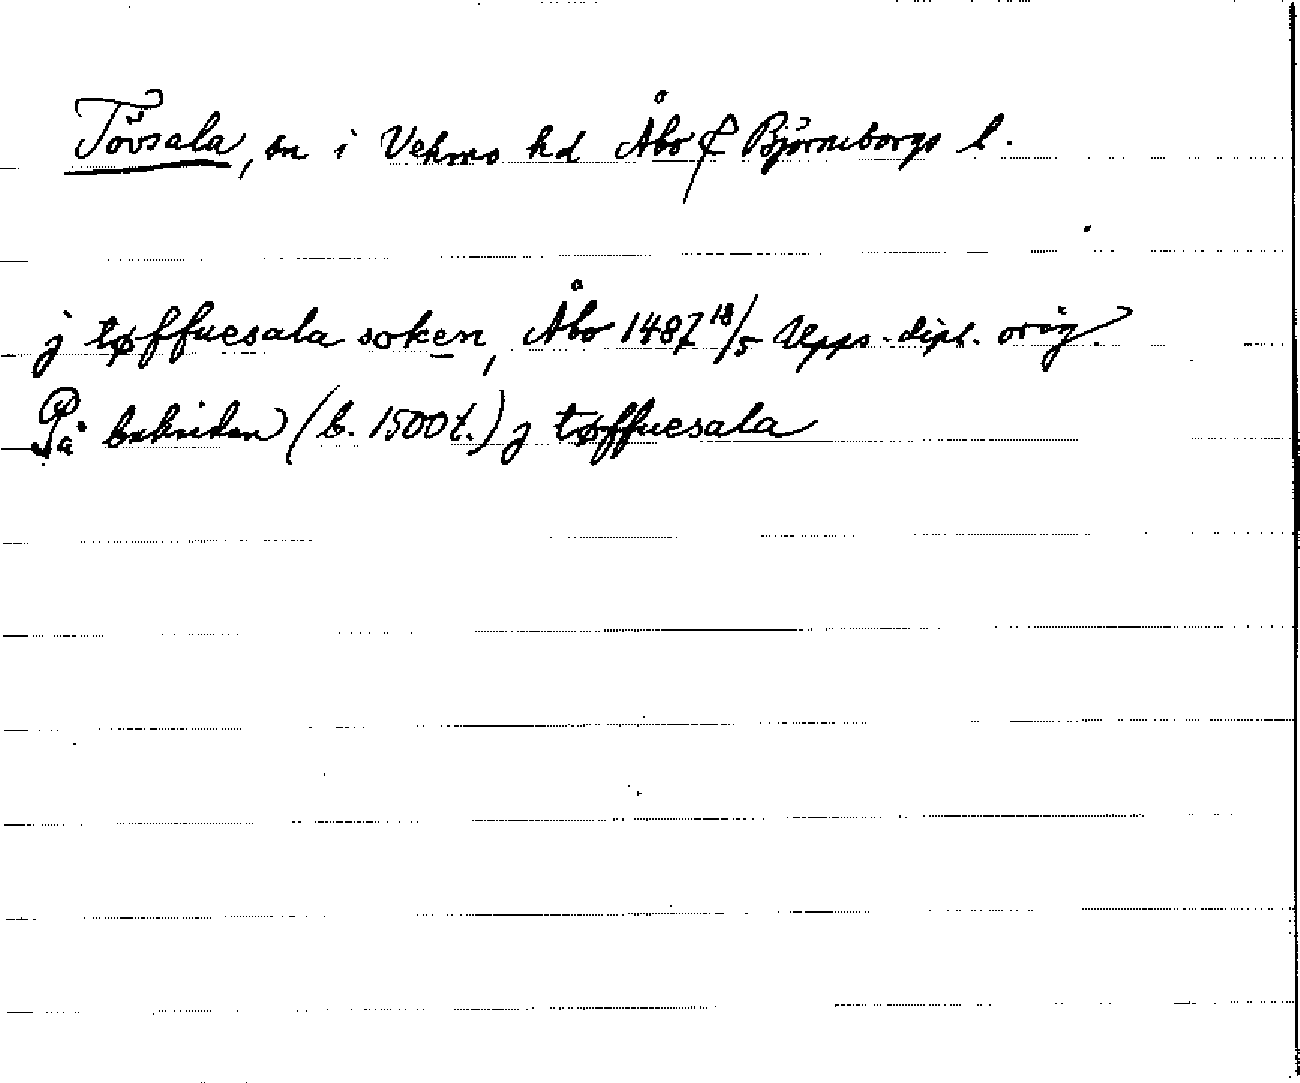 Tövsala, sn i Vehmo hd Åbo & Björneborgs l.
j tøffuesala soken, Åbo 1487 18/5 Upps. dipl. orig.
På baksidan (b. 1500 t.) j tøffuesala